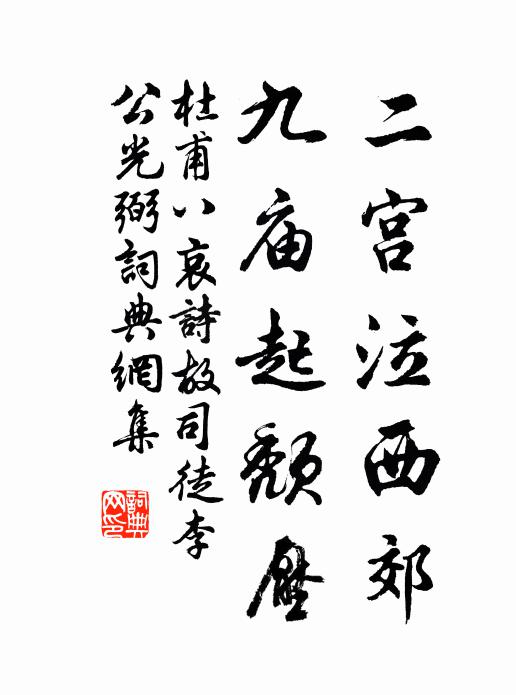 二宫泣西郊
九庙起颓壓
杜甫八哀詩故司徒李
公光弼詞典網集
詞典網印